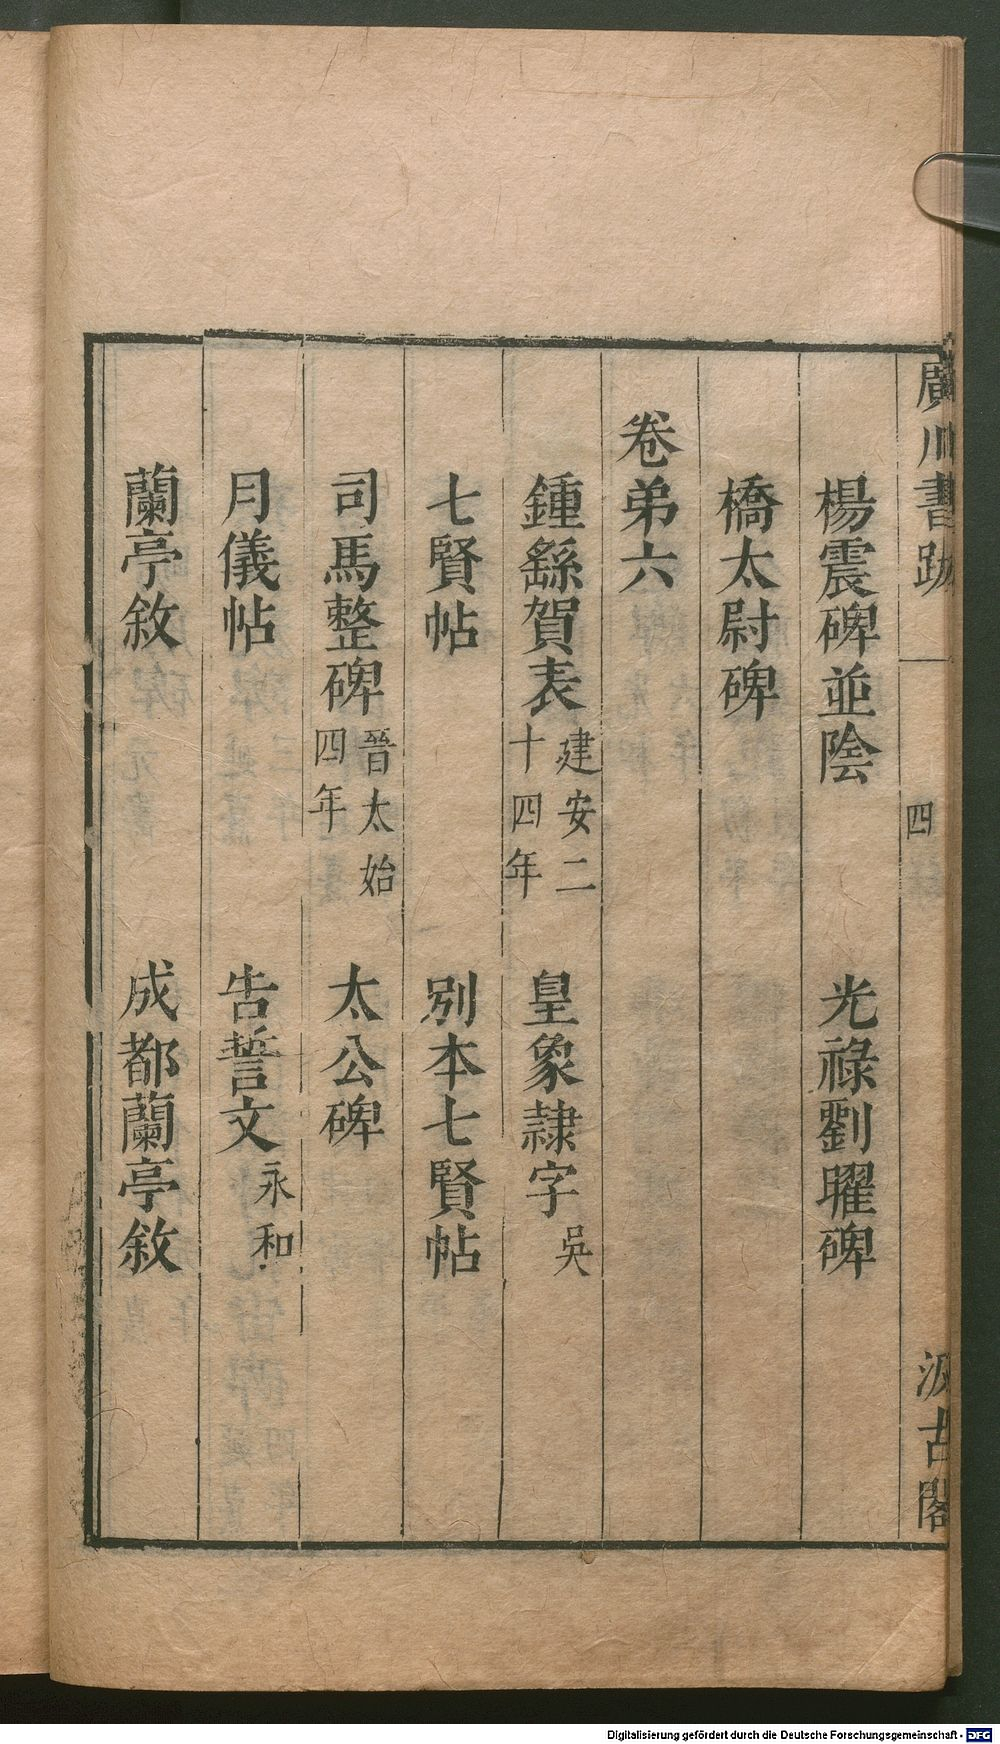 廣川書跋 四 汲古閣
楊震碑並陰 光祿劉曜碑
橋太尉碑
卷弟六
鍾繇賀表 建安二十四年 皇象隸字 吳
七賢帖 別本七賢帖
司馬整碑 晉太始四年 太公碑
月儀帖 告誓文 永和
蘭亭敘 成都蘭亭敘
Digitalisierung gefördert durch die Deutsche Forschungsgemeinschaft - DFG